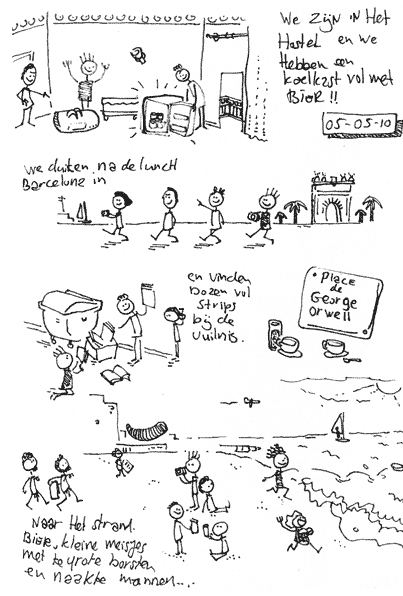 We zijn in Het
Hostel en we
Hebben een
koelkast vol met
Bier!!
05-05-10
We duiken na de lunch
Barcelona in
en vinden
dozen vol
strips
bij de
vuilnis.
Place
de
George
orwell
Naar Het strand.
Bier, kleine meisjes
met te grote borsten
en naakte mannen....